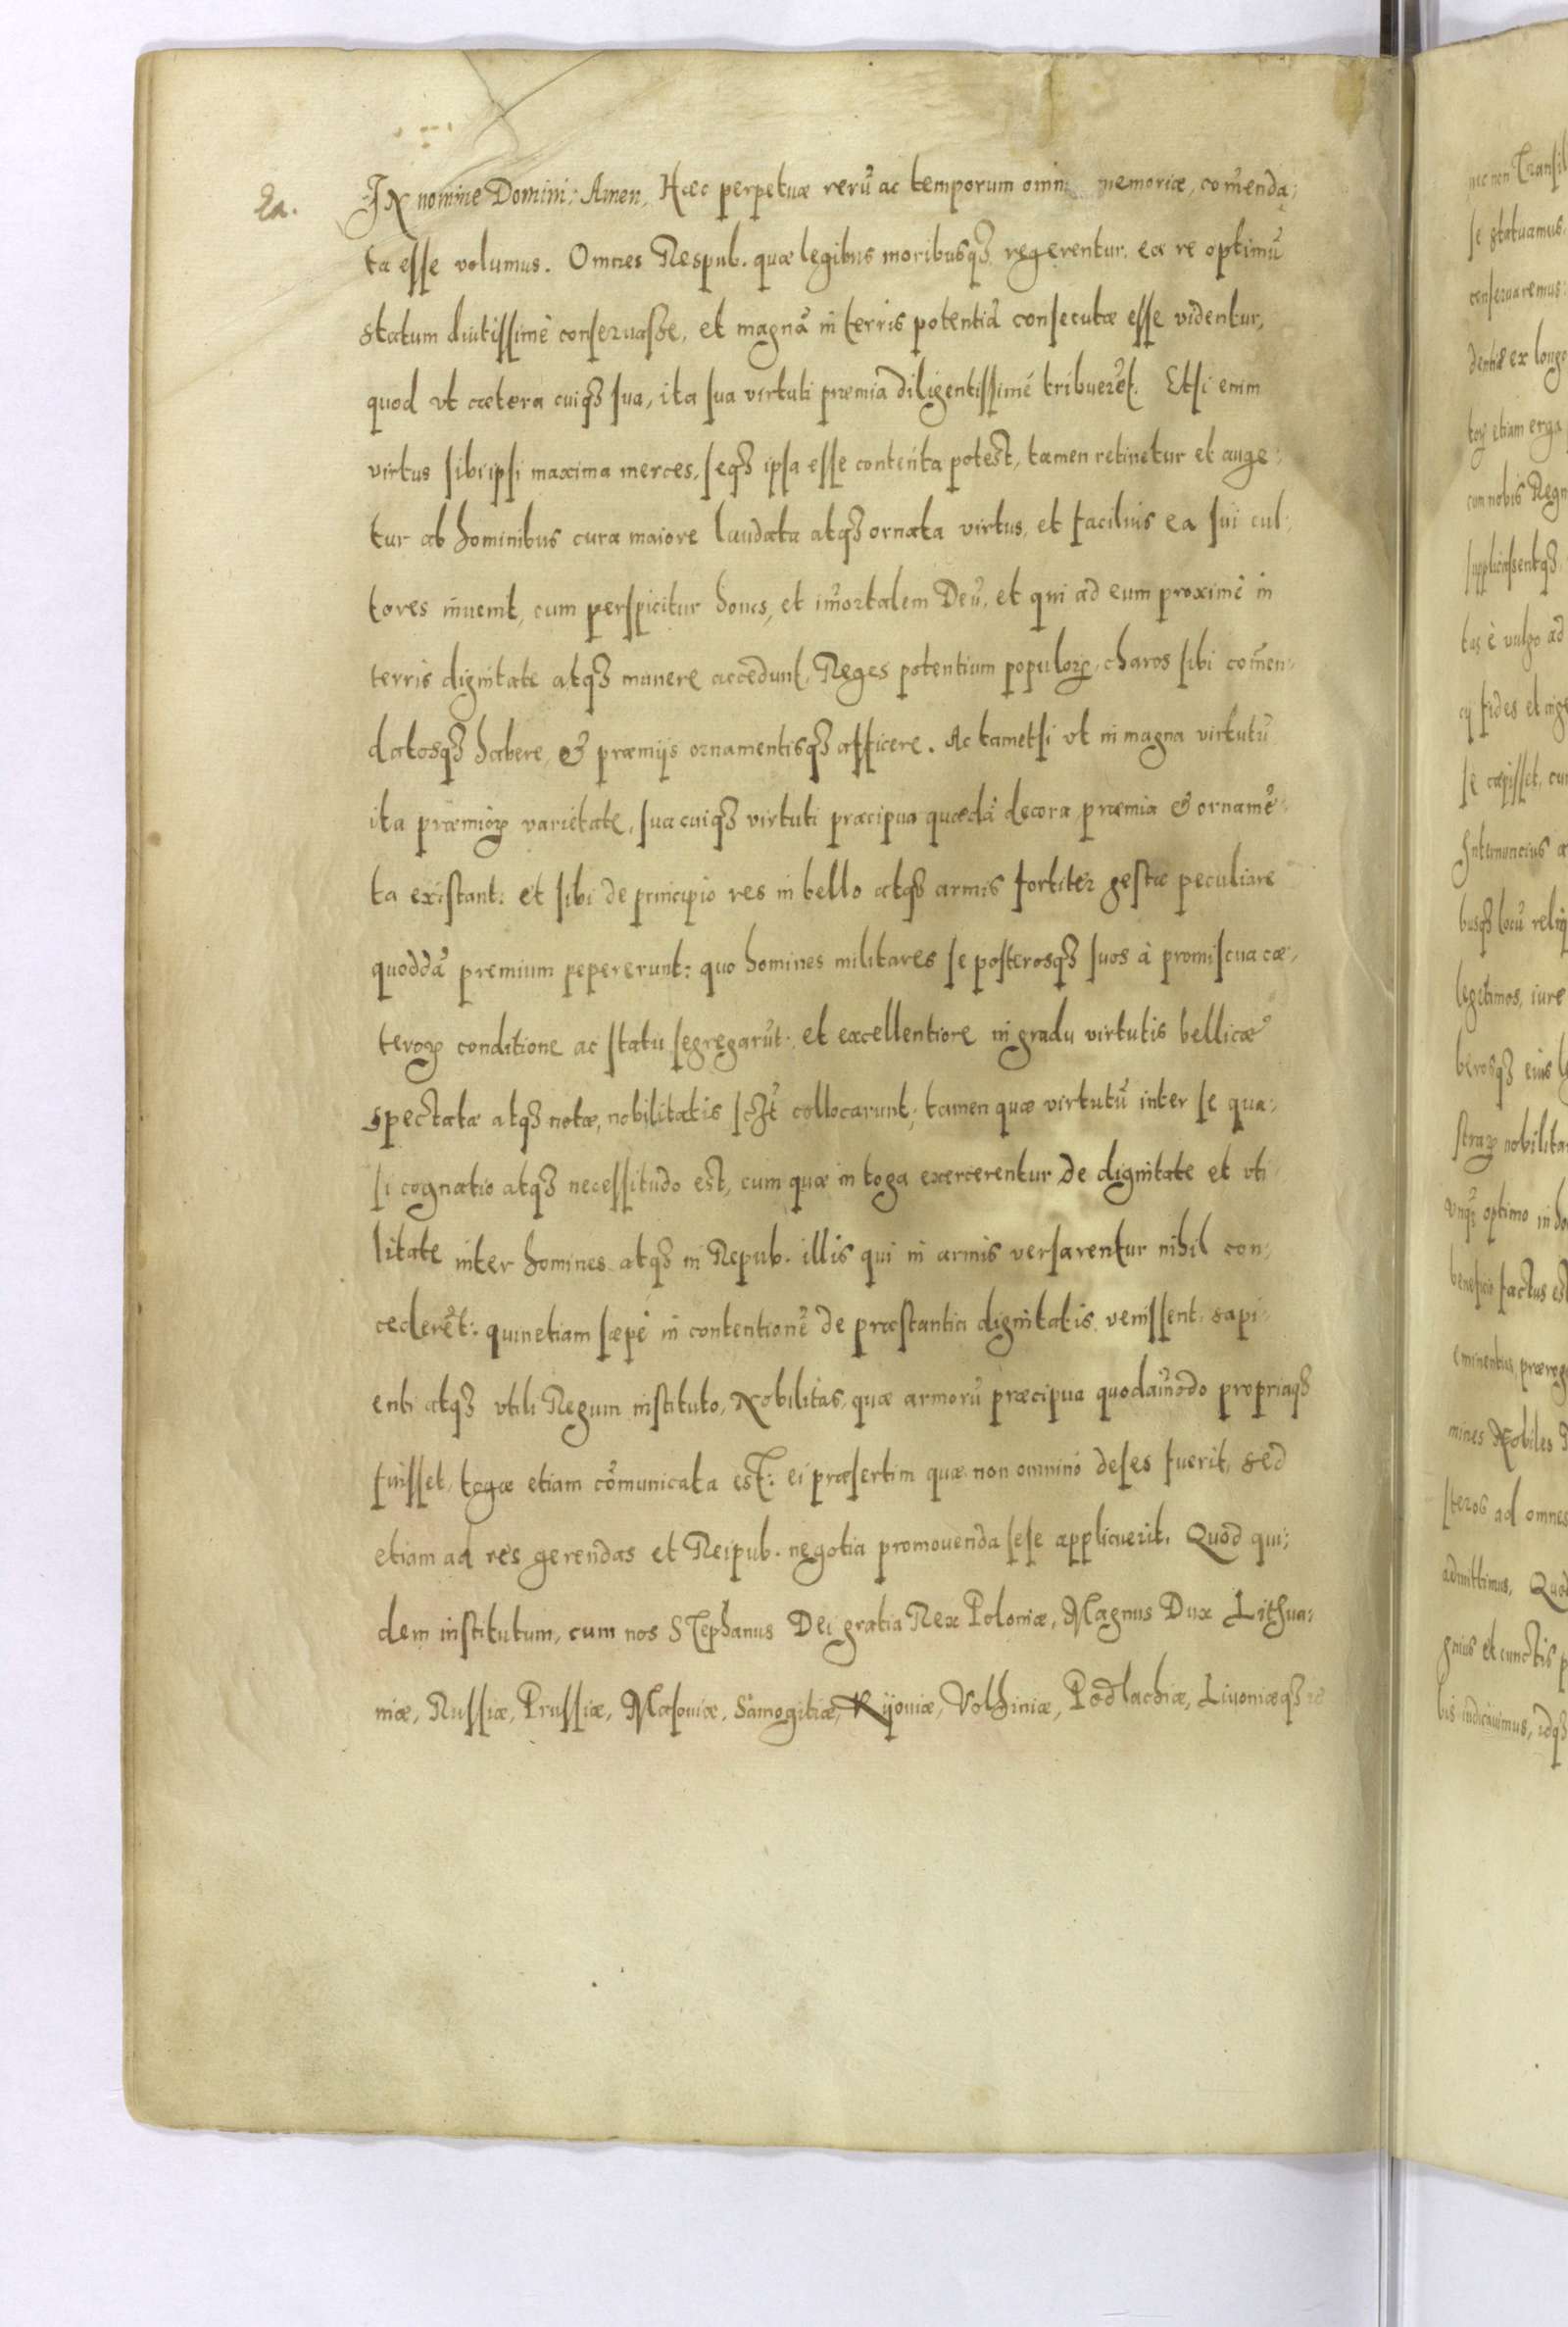 2a.
IN nomine Domini: Amen, Hæc perpetuæ rerũ ac temporum omni memoriæ, com̃enda:
ta esse volumus. Omnes Respub. quæ legibus moribusqȝ regerentur, ea re optimũ
statum diutissimè conseruasse, et magnã in terris potentiã consecutæ esse videntur,
quod vt cætera cuiqȝ sua, ita sua virtuti præmia diligentissimè tribuerẽt. Etsi enim
virtus sibi ipsi maxima merces, seqȝ ipsa esse contenta potest, tamen retinetur et auge:
tur ab hominibus cura maiore laudata atqȝ ornata virtus, et facilius ea sui cul:
tores inuenit, cum perspicitur honos, et im̃ortalem Deũ, et qui ad eum proximè in
terris dignitate atqȝ munere accedunt, Reges potentium populoꝝ, charos sibi com̃en:
datosqȝ habere, & præmijs ornamentisqȝ afficere. Ac tametsi vt in magna virtutũ
ita præmioꝝ varietate, sua cuiqȝ virtuti præcipua quædã decora præmia & ornamẽ:
ta existant: et sibi de principio res in bello atqȝ armis fortiter gestæ peculiare
quoddã premium pepererunt: quo homines militares se posterosqȝ suos à promiscua cæ:
teroꝝ conditione ac statu segregarũt: et excellentiore in gradu virtutis bellicæ
spectatæ atqȝ notæ, nobilitatis collocarunt; tamen quæ virtutũ inter se qua:
si cognatio atqȝ necessitudo est, cum quæ in toga exercerentur de dignitate et vti
litate inter homines atqȝ in Repub. illis qui in armis versarentur nihil con:
cederẽt: quinetiam sæpè in contentionẽ de præstantia dignitatis venissent, sapi:
enti atqȝ vtili Regum instituto, Nobilitas, quæ armorũ præcipua quodam̃odo propriaqȝ
fuisset, togæ etiam cõmunicata est: ei præsertim quæ non omnino deses fuerit, sed
etiam ad res gerendas et Reipub. negotia promouenda sese applicuerit. Quod qui:
dem institutum, cum nos Stephanus Dei gratia Rex Poloniæ, Magnus Dux Lithua:
niæ, Russiæ, Prussiæ, Masouiæ, Samogitiæ, Kijouiæ, Volhiniæ, Podlachiæ, Liuoniæqȝ
nec non Transil
se statuamus,
conseruaremus:
dentis ex longo
toꝝ etiam erga
cum nobis Regn
tas è vulgo ad
fides et inge
se cæpisset, cu
Internuncius
busqȝ locũ reliq
legitimos, iure
berosqȝ eius
straꝝ nobilita
optimo in ho
beneficio factus est
eminentius, prærog
mines Nobiles
steros ad omnes
admittimus. Quod
et cunctis p
bis indicauimus, idqȝ